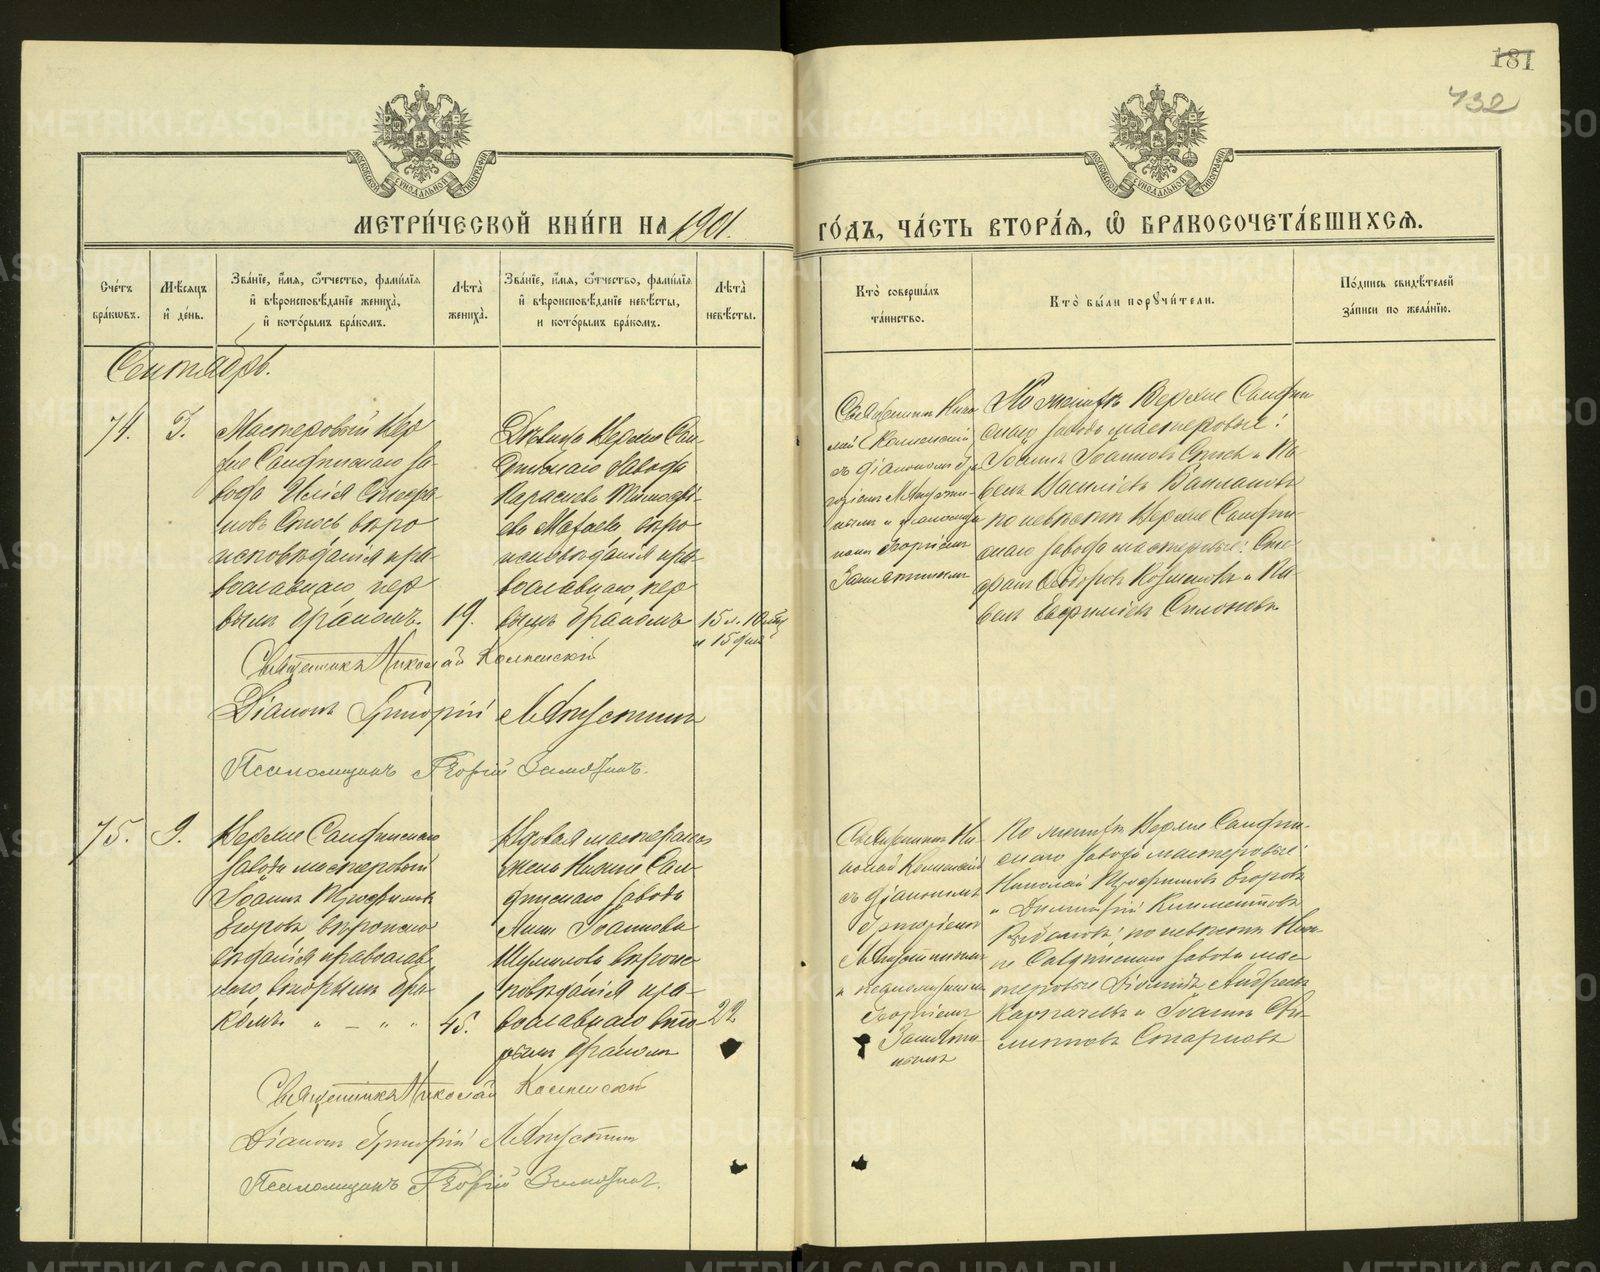 181
732
МЕТРИ́ЧЕСКОЙ КНИ́ГИ НА 1901.
ГО́ДЪ, ЧА́СТЬ ВТОРА́Я, Ѡ БРАКОСОЧЕТА́ВШИХСЯ.
Сче́тъ бра́кѡвъ.
Мѣ́сяцъ и де́нь.
Зва́нїе, и́мя, ѻ́тчество, фами́лїя
и вѣроисповѣ́данїе жениха̀,
и кото́рымъ бра́комъ.
Лѣ́та жениха̀.
Зва́нїе, и́мя, ѻ́тчество, фами́лїя
и вѣроисповѣ́данїе невѣ́сты,
и кото́рымъ бра́комъ.
Лѣ́та невѣ́сты.
Кто̀ соверша́лъ
та́инство.
Кто̀ бы́ли порꙋчи́тели.
По́дпись свидѣ́телей
за́писи по жела́нїю.
Сентябрь.
74.
9.
Мастеровый Вер
хне Салдинскаго За
вода Илія Стефа
новъ Спосъ, вѣро
исповѣданія пра
вославнаго, пер
вымъ бракомъ.
19.
Дѣвица Верхне Сал
динскаго Завода
Параскева Тимофѣ
ева вѣро
исповѣданія пра
вославнаго, пер
вымъ бракомъ
15 л. 10 мѣс
и 15 дней
Священникъ Нико
лай
съ діакономъ Гри
горіемъ
нымъ и псаломщи
комъ Георгіемъ
Замятинымъ
По женихѣ Верхне Салдин
скаго завода мастеровые:
Іоаннъ Іоанновъ Спосъ и Па
велъ Василіевъ
по невѣстѣ Верхне Салдин
скаго завода мастеровые: Сте
фанъ Ѳеодоровъ и Па
велъ Евфиміевъ
Священникъ Николай
Діаконъ Григорій
Псаломщикъ Георгій Замятинъ.
75.
9.
Верхне Салдинскаго
завода мастеровый
Іоаннъ Трофимовъ
Егоровъ, вѣроиспо
вѣданія православ
наго, вторымъ бра
комъ " — " "
45.
Вдовая мастерская
жена Нижне Сал
динскаго завода
Анна Іоаннова
вѣроис
повѣданія пра
вославнаго вто
рымъ бракомъ
22
Священникъ Ни
колай
съ діакономъ
Григоріемъ
и псаломщикомъ
Георгіемъ
Замяти
нымъ
По женихѣ Верхне Салдин
скаго завода мастеровые:
Николай Трофимовъ Егоровъ
и Димитрій Климентовъ
по невѣстѣ Ниж
не Салдинскаго завода мас
теровые Діомидъ Андреевъ
и Іоаннъ
Священникъ Николай
Діаконъ Григорій
Псаломщикъ Георгій Замятинъ.
METRIKI.GASO-URAL.RU